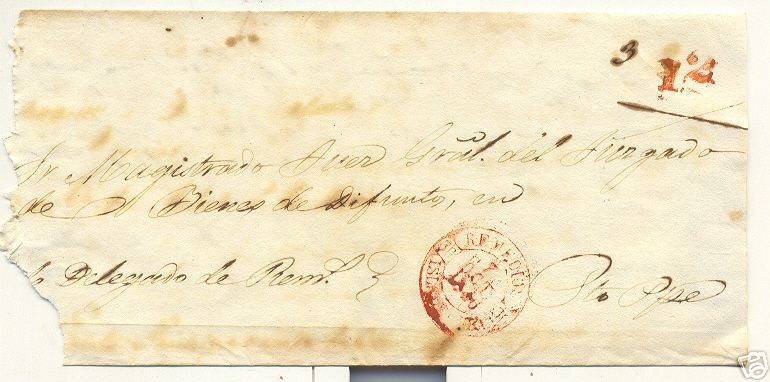 3 12
Sr Magistrado Juez Gral. del Juzgado
de Bienes de Difunto, en
Delegado de Rem.s
REMEDIOS
Pto Ppe